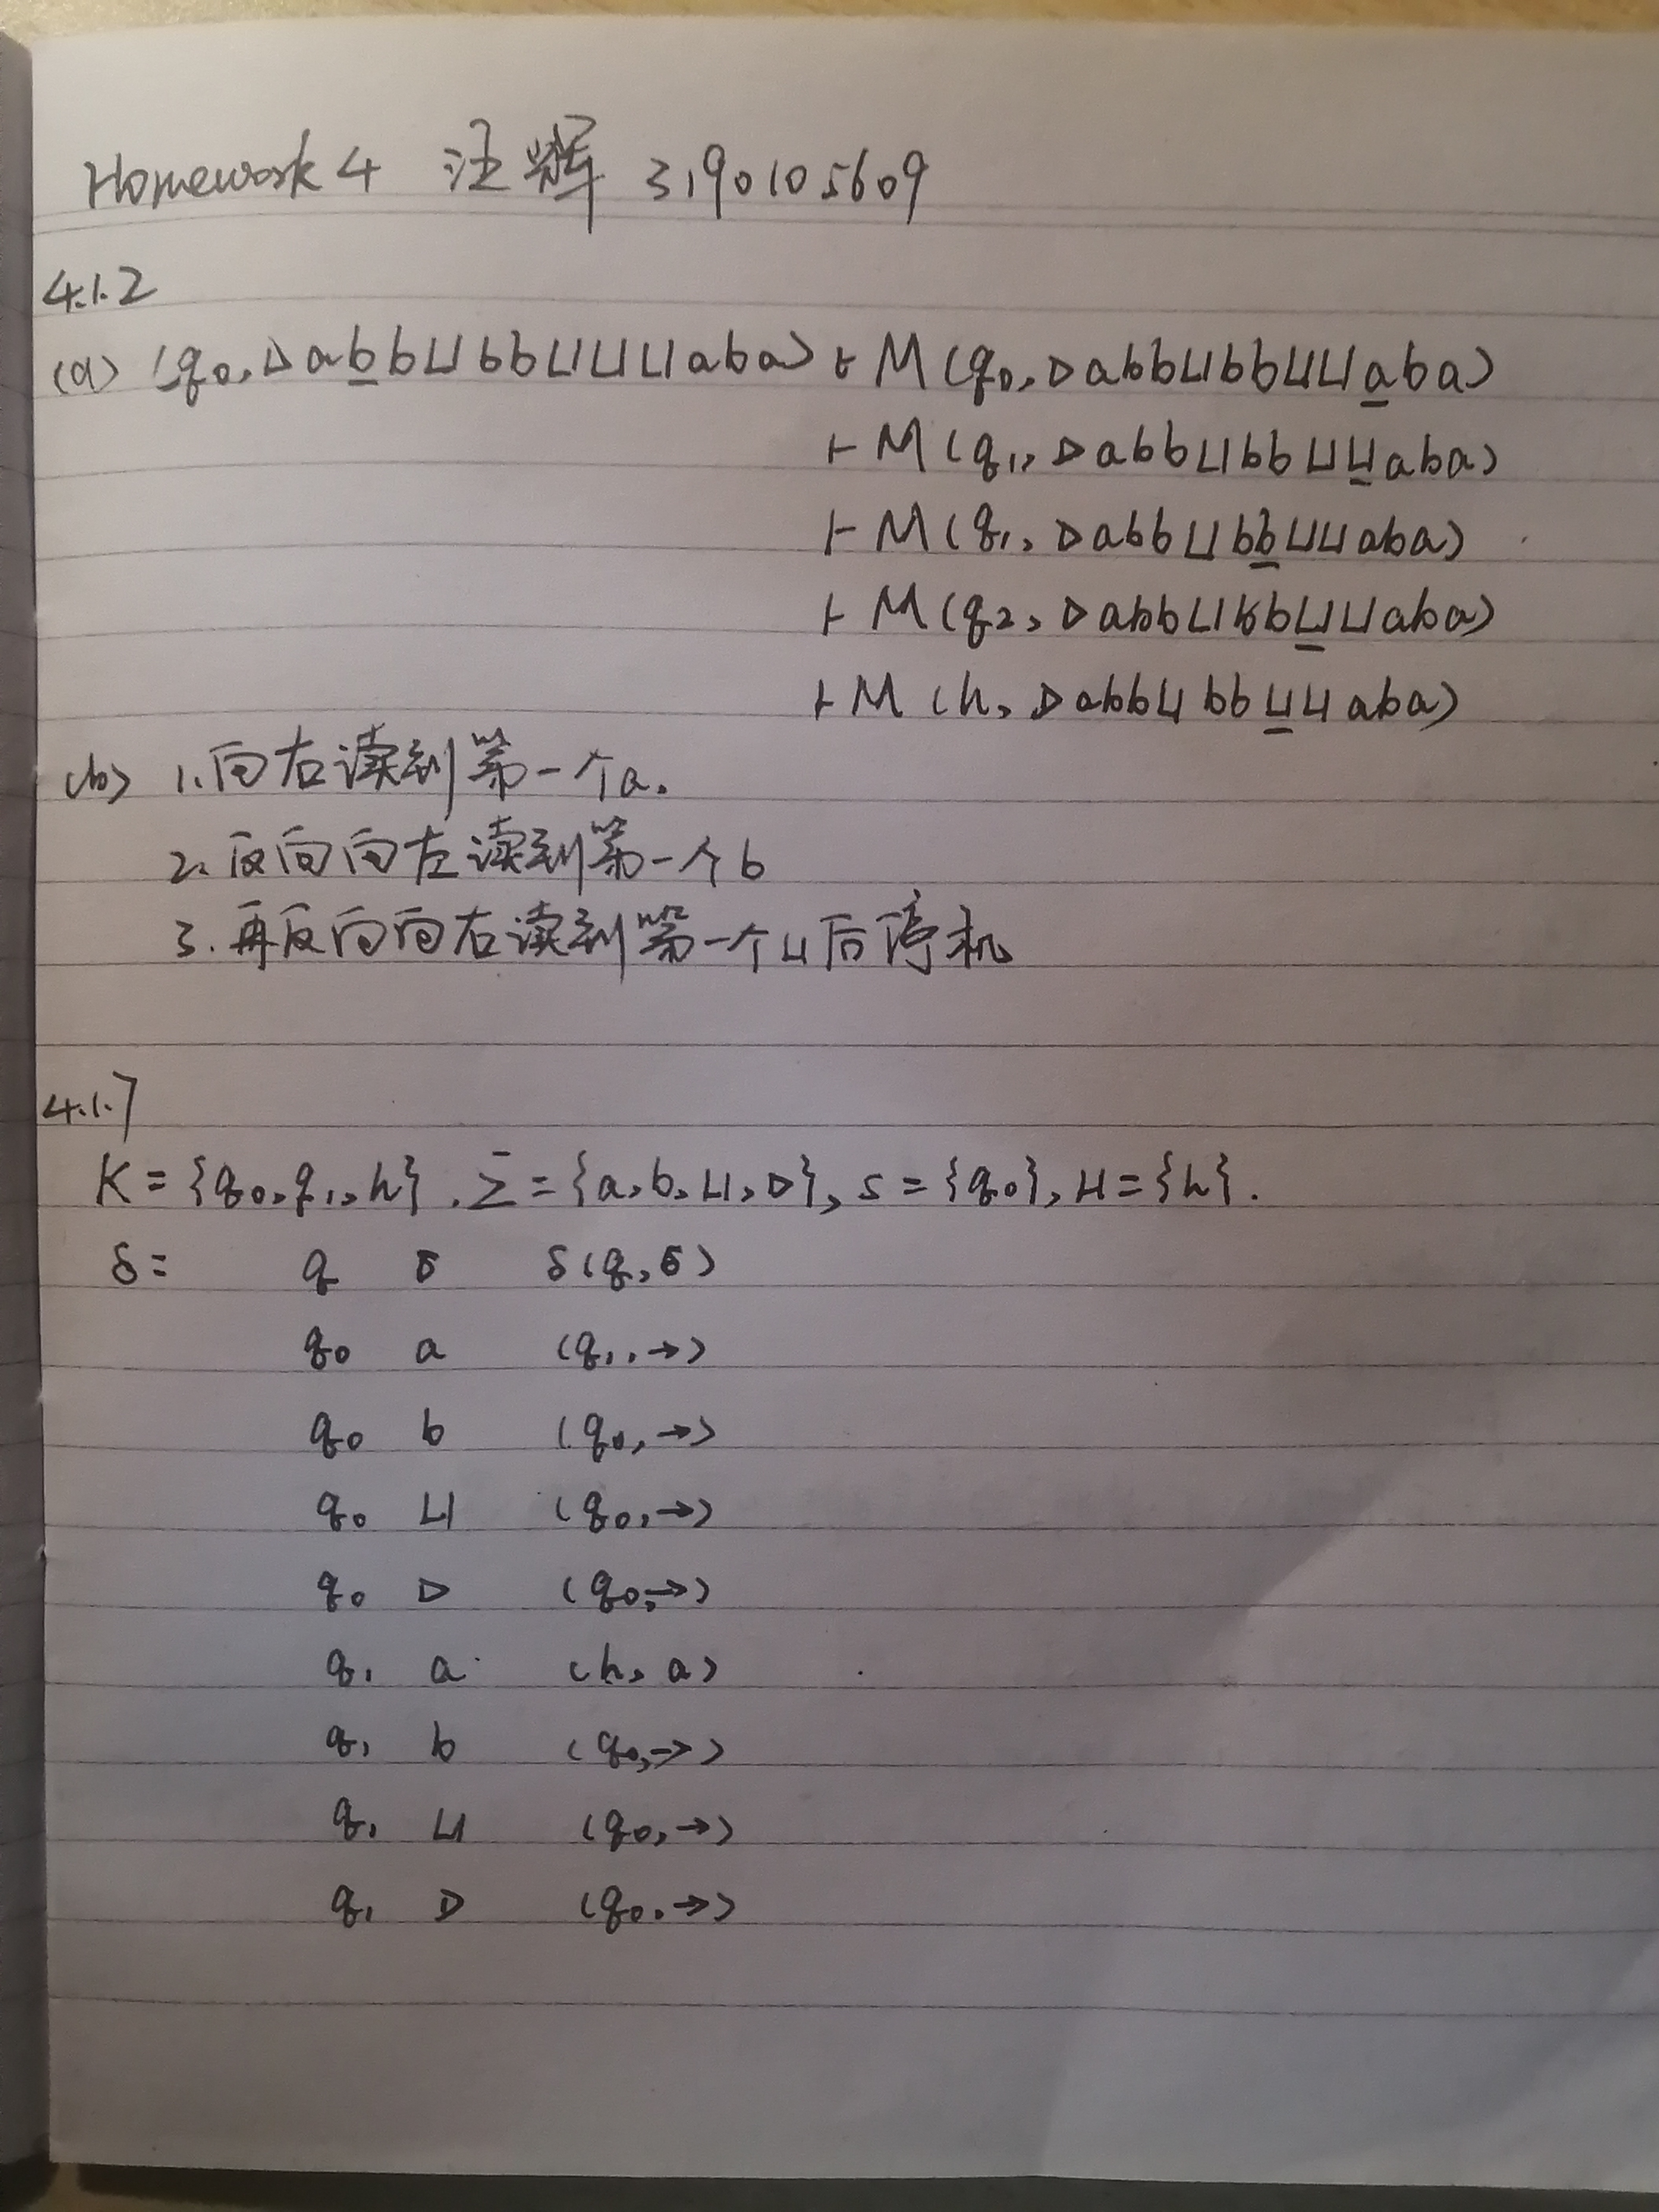 Homework 4 汪辉 3190105609
4.1.2
(a) (q₀, ▷abb⊔bb⊔⊔⊔aba) ⊢ M (q₀, ▷abb⊔bb⊔⊔aba)
⊢ M (q₁, ▷abb⊔bb⊔⊔aba)
⊢ M (q₁, ▷abb⊔bb⊔⊔aba)
⊢ M (q₂, ▷abb⊔bb⊔⊔aba)
⊢ M (h, ▷abb⊔bb⊔⊔aba)
(b) 1. 向右读到第一个a.
2. 反向向左读到第一个b
3. 再反向向右读到第一个⊔后停机
4.1.7
K = {q₀, q₁, h}. Σ = {a, b, ⊔, ▷}, s = {q₀}, H = {h}.
δ = q σ δ(q, σ)
q₀ a (q₁, →)
q₀ b (q₀, →)
q₀ ⊔ (q₀, →)
q₀ ▷ (q₀, →)
q₁ a (h, a)
q₁ b (q₀, →)
q₁ ⊔ (q₀, →)
q₁ ▷ (q₀, →)